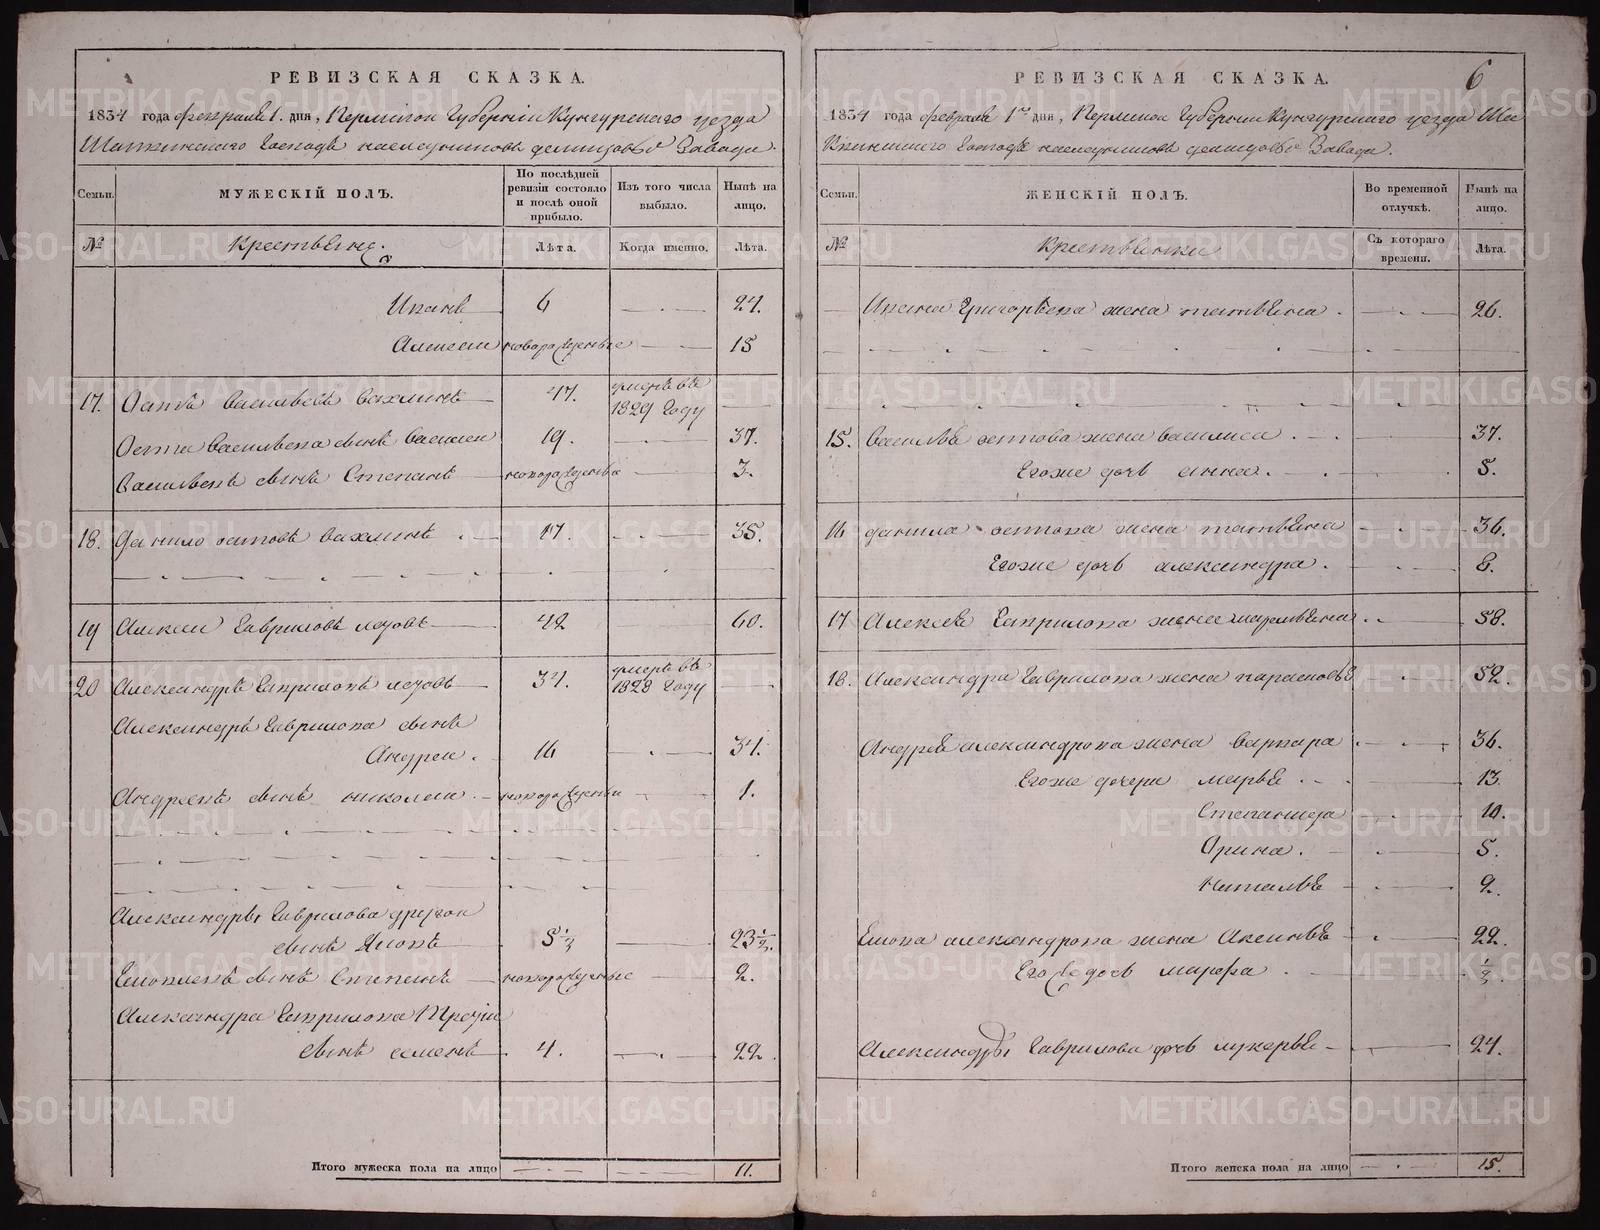 РЕВИЗСКАЯ СКАЗКА.
1834 года февраля 1. дня, Пермской Губерніи Кунгурского уезда
Господъ наследниковъ Завада.
Семьи.
МУЖЕСКІЙ ПОЛЪ.
По послѣдней ревизіи состояло и послѣ оной прибыло.
Изъ того числа выбыло.
Нынѣ на лицо.
№
Крестьяне.
Лѣта.
Когда именно.
Лѣта.
Иванъ 6 24.
Алексеи новорожденные 15
17. Осипъ Васильевъ 47. умеръ въ 1829 году
Васильева сынъ Василеи 19. 37.
Васильевъ сынъ Степанъ новорожденны 3.
18. Данило Осиповъ 17. 35.
19 Алексеи Гавриловъ 42 60.
20 Александръ Гавриловъ 34. умеръ въ 1828 году
Александръ Гаврилова сынъ
Андреи. 16 34.
Андреевъ сынъ николаи. новорожденны 1.
Александры Гаврилова другои
сынъ 5½ 23½.
сынъ Степанъ новорожденные 2.
Александра Гаврилова Трети
сынъ семенъ 4. 22.
Итого мужеска пола на лицо 11.
РЕВИЗСКАЯ СКАЗКА. 6
1834 года февраля 1го дня, Пермской Губерніи Кунгурского уезда
Господъ наследниковъ Завада.
Семьи.
ЖЕНСКІЙ ПОЛЪ.
Во временной отлучкѣ.
Нынѣ на лицо.
№
Крестьянки
Съ котораго времени.
Лѣта.
Ивана Григорьева жена татьяна. 26.
15. Василья осипова жена василиса. 37.
Егоже дочь анна. 5.
16 данила осипова жена татьяна 36.
Егоже дочь александра. 8.
17 Алексея Гаврилова жена 58.
18. Александра Гаврилова жена парасковья 52.
Андрея александрова жена варвара 36.
Егоже дочери марья 13.
Степанида 10.
Орина. 5.
Наталья 2.
александрова жена Аксинья 22.
Его же дочь марфа. ½.
Александры Гаврилова дочь лукерья 24.
Итого женска пола на лицо 15.
METRIKI.GASO-URAL.RU